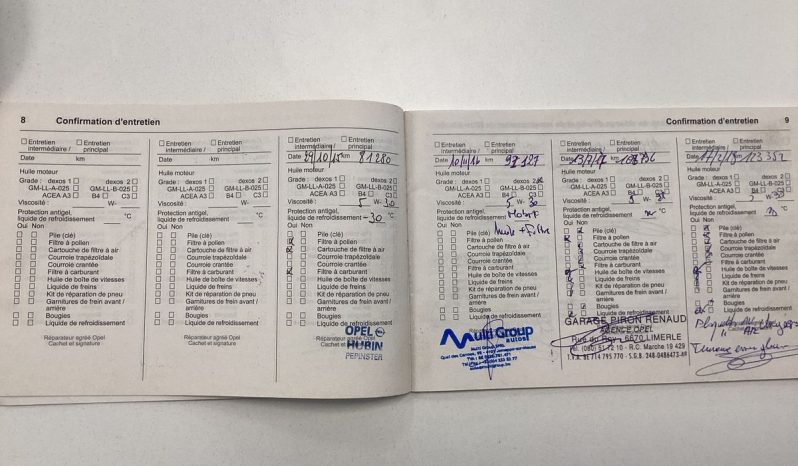 8 Confirmation d'entretien
Entretien intermédiaire / Entretien principal
Date km
Huile moteur
Grade : dexos 1 dexos 2
GM-LL-A-025 GM-LL-B-025
ACEA A3 B4 C3
Viscosité : W-
Protection antigel, liquide de refroidissement °C
Oui Non
Pile (clé)
Filtre à pollen
Cartouche de filtre à air
Courroie trapézoïdale
Courroie crantée
Filtre à carburant
Huile de boîte de vitesses
Liquide de freins
Kit de réparation de pneu
Garnitures de frein avant / arrière
Bougies
Liquide de refroidissement
Réparateur agréé Opel
Cachet et signature
Entretien intermédiaire / Entretien principal
Date km
Huile moteur
Grade : dexos 1 dexos 2
GM-LL-A-025 GM-LL-B-025
ACEA A3 B4 C3
Viscosité : W-
Protection antigel, liquide de refroidissement °C
Oui Non
Pile (clé)
Filtre à pollen
Cartouche de filtre à air
Courroie trapézoïdale
Courroie crantée
Filtre à carburant
Huile de boîte de vitesses
Liquide de freins
Kit de réparation de pneu
Garnitures de frein avant / arrière
Bougies
Liquide de refroidissement
Réparateur agréé Opel
Cachet et signature
Entretien intermédiaire / Entretien principal
Date 29/10/15 km 81280
Huile moteur
Grade : dexos 1 dexos 2
GM-LL-A-025 GM-LL-B-025
ACEA A3 B4 C3
Viscosité : 5 W- 30
Protection antigel, liquide de refroidissement -30 °C
Oui Non
Pile (clé)
Filtre à pollen
Cartouche de filtre à air
Courroie trapézoïdale
Courroie crantée
Filtre à carburant
Huile de boîte de vitesses
Liquide de freins
Kit de réparation de pneu
Garnitures de frein avant / arrière
Bougies
Liquide de refroidissement
Réparateur agréé Opel
OPEL
HURIN
PEPINSTER
Confirmation d'entretien 9
Entretien intermédiaire / Entretien principal
Date 10/11/16 km 127
Huile moteur
Grade : dexos 1 dexos 2
GM-LL-A-025 GM-LL-B-025
ACEA A3 B4 C3
Viscosité : 5 W- 30
Protection antigel, liquide de refroidissement
Oui Non
Huile + Filtre
Pile (clé)
Filtre à pollen
Cartouche de filtre à air
Courroie trapézoïdale
Courroie crantée
Filtre à carburant
Huile de boîte de vitesses
Liquide de freins
Kit de réparation de pneu
Garnitures de frein avant / arrière
Bougies
Liquide de refroidissement
Réparateur agréé Opel
Multi Group
autos
Entretien intermédiaire / Entretien principal
Date km
Huile moteur
Grade : dexos 1 dexos 2
GM-LL-A-025 GM-LL-B-025
ACEA A3 B4 C3
Viscosité : 5 W- 30
Protection antigel, liquide de refroidissement °C
Oui Non
Pile (clé)
Filtre à pollen
Cartouche de filtre à air
Courroie trapézoïdale
Courroie crantée
Filtre à carburant
Huile de boîte de vitesses
Liquide de freins
Kit de réparation de pneu
Garnitures de frein avant / arrière
Bougies
Liquide de refroidissement
GARAGE PIRON RENAUD
AGENCE OPEL
6670 LIMERLE
Tél. (080) 51 72 10 - R.C. Marche 19 429
Entretien intermédiaire / Entretien principal
Date km 113 352
Huile moteur
Grade : dexos 1 dexos 2
GM-LL-A-025 GM-LL-B-025
ACEA A3 B4 C3
Viscosité : W-
Protection antigel, liquide de refroidissement °C
Oui Non
Pile (clé)
Filtre à pollen
Cartouche de filtre à air
Courroie trapézoïdale
Courroie crantée
Filtre à carburant
Huile de boîte de vitesses
Liquide de freins
Kit de réparation de pneu
Garnitures de frein avant / arrière
Bougies
Liquide de refroidissement